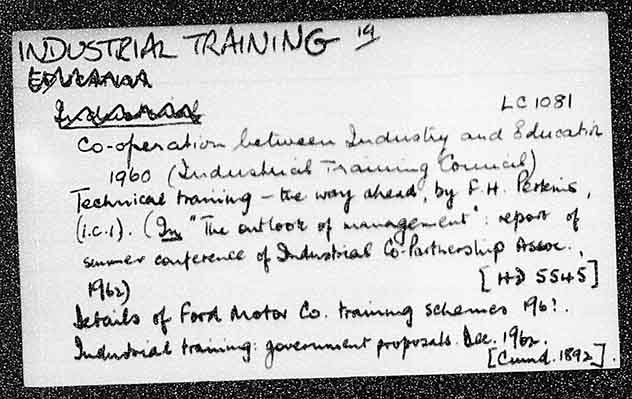 INDUSTRIAL TRAINING 19
LC 1081
Co-operation between Industry and Education
1960 (Industrial Training Council)
Technical training – the way ahead, by F.H. Perkins,
(I.C.I). (In "The outlook of management": report of
summer conference of Industrial Co-Partnership Assoc.,
1962) [HD 5545]
Details of Ford Motor Co. training schemes 196?.
Industrial training: government proposals. Dec. 1962.
[Cmnd. 1892].